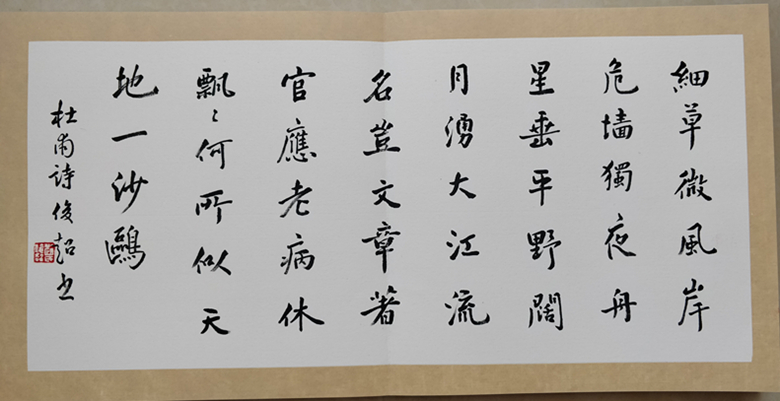 細草微風岸
危墻獨夜舟
星垂平野闊
月湧大江流
名豈文章著
官應老病休
飄〻何所似天
地一沙鷗
杜甫詩俊超书